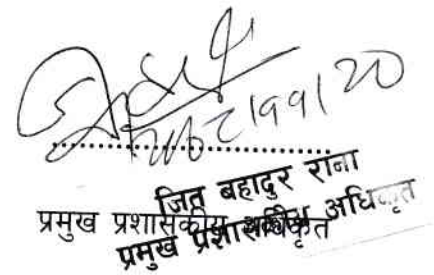 जित बहादुर राना
प्रमुख प्रशासकीय अधिकृत
प्रमुख प्रशासकीय अधिकृत